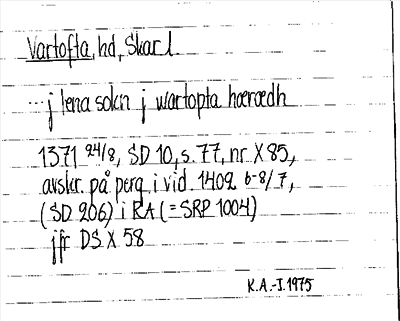 Vartofta, hd, Skar l.
...j lena sokn j wartopta hærædh
1371 24/8, SD 10, s. 77, nr X 85,
avskr. på perg. i vid. 1402 6-8/7,
(SD 206) i RA (= SRP 1004)
jfr DS X 58
K.A.-J. 1975